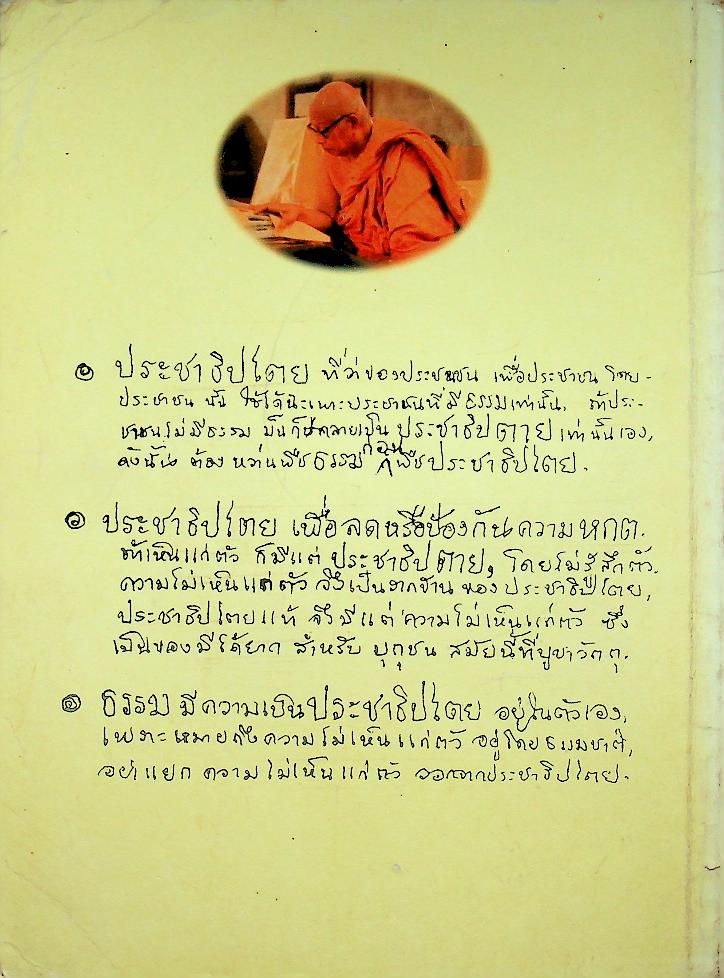 ๏ ประชาธิปไตย ที่ว่าของประชาชน เพื่อประชาชน โดย-
ประชาชน นั้น ใช้ได้เฉพาะประชาชนที่มีธรรมเท่านั้น, ถ้าประ-
ชาชนไม่มีธรรม มันก็กลายเป็น ประชาธิปตาย เท่านั้นเอง,
ดังนั้น ต้อง หว่านพืชธรรม ก่อนพืชประชาธิปไตย.
๏ ประชาธิปไตย เพื่อลดหรือป้องกันความ
ถ้าเห็นแก่ตัว ก็มีแต่ ประชาธิปตาย, โดยไม่รู้สึกตัว.
ความไม่เห็นแก่ตัว จึงเป็นรากฐาน ของ ประชาธิปไตย,
ประชาธิปไตยแท้ จึงมีแต่ ความไม่เห็นแก่ตัว ซึ่ง
เป็นของมีได้ยาก สำหรับ ปุถุชน สมัยนี้ที่บูชาวัตถุ.
๏ ธรรม มีความเป็นประชาธิปไตย อยู่ในตัวเอง,
เพราะหมายถึงความไม่เห็นแก่ตัว อยู่โดยธรรมชาติ,
อย่าแยก ความไม่เห็นแก่ตัว ออกจากประชาธิปไตย.